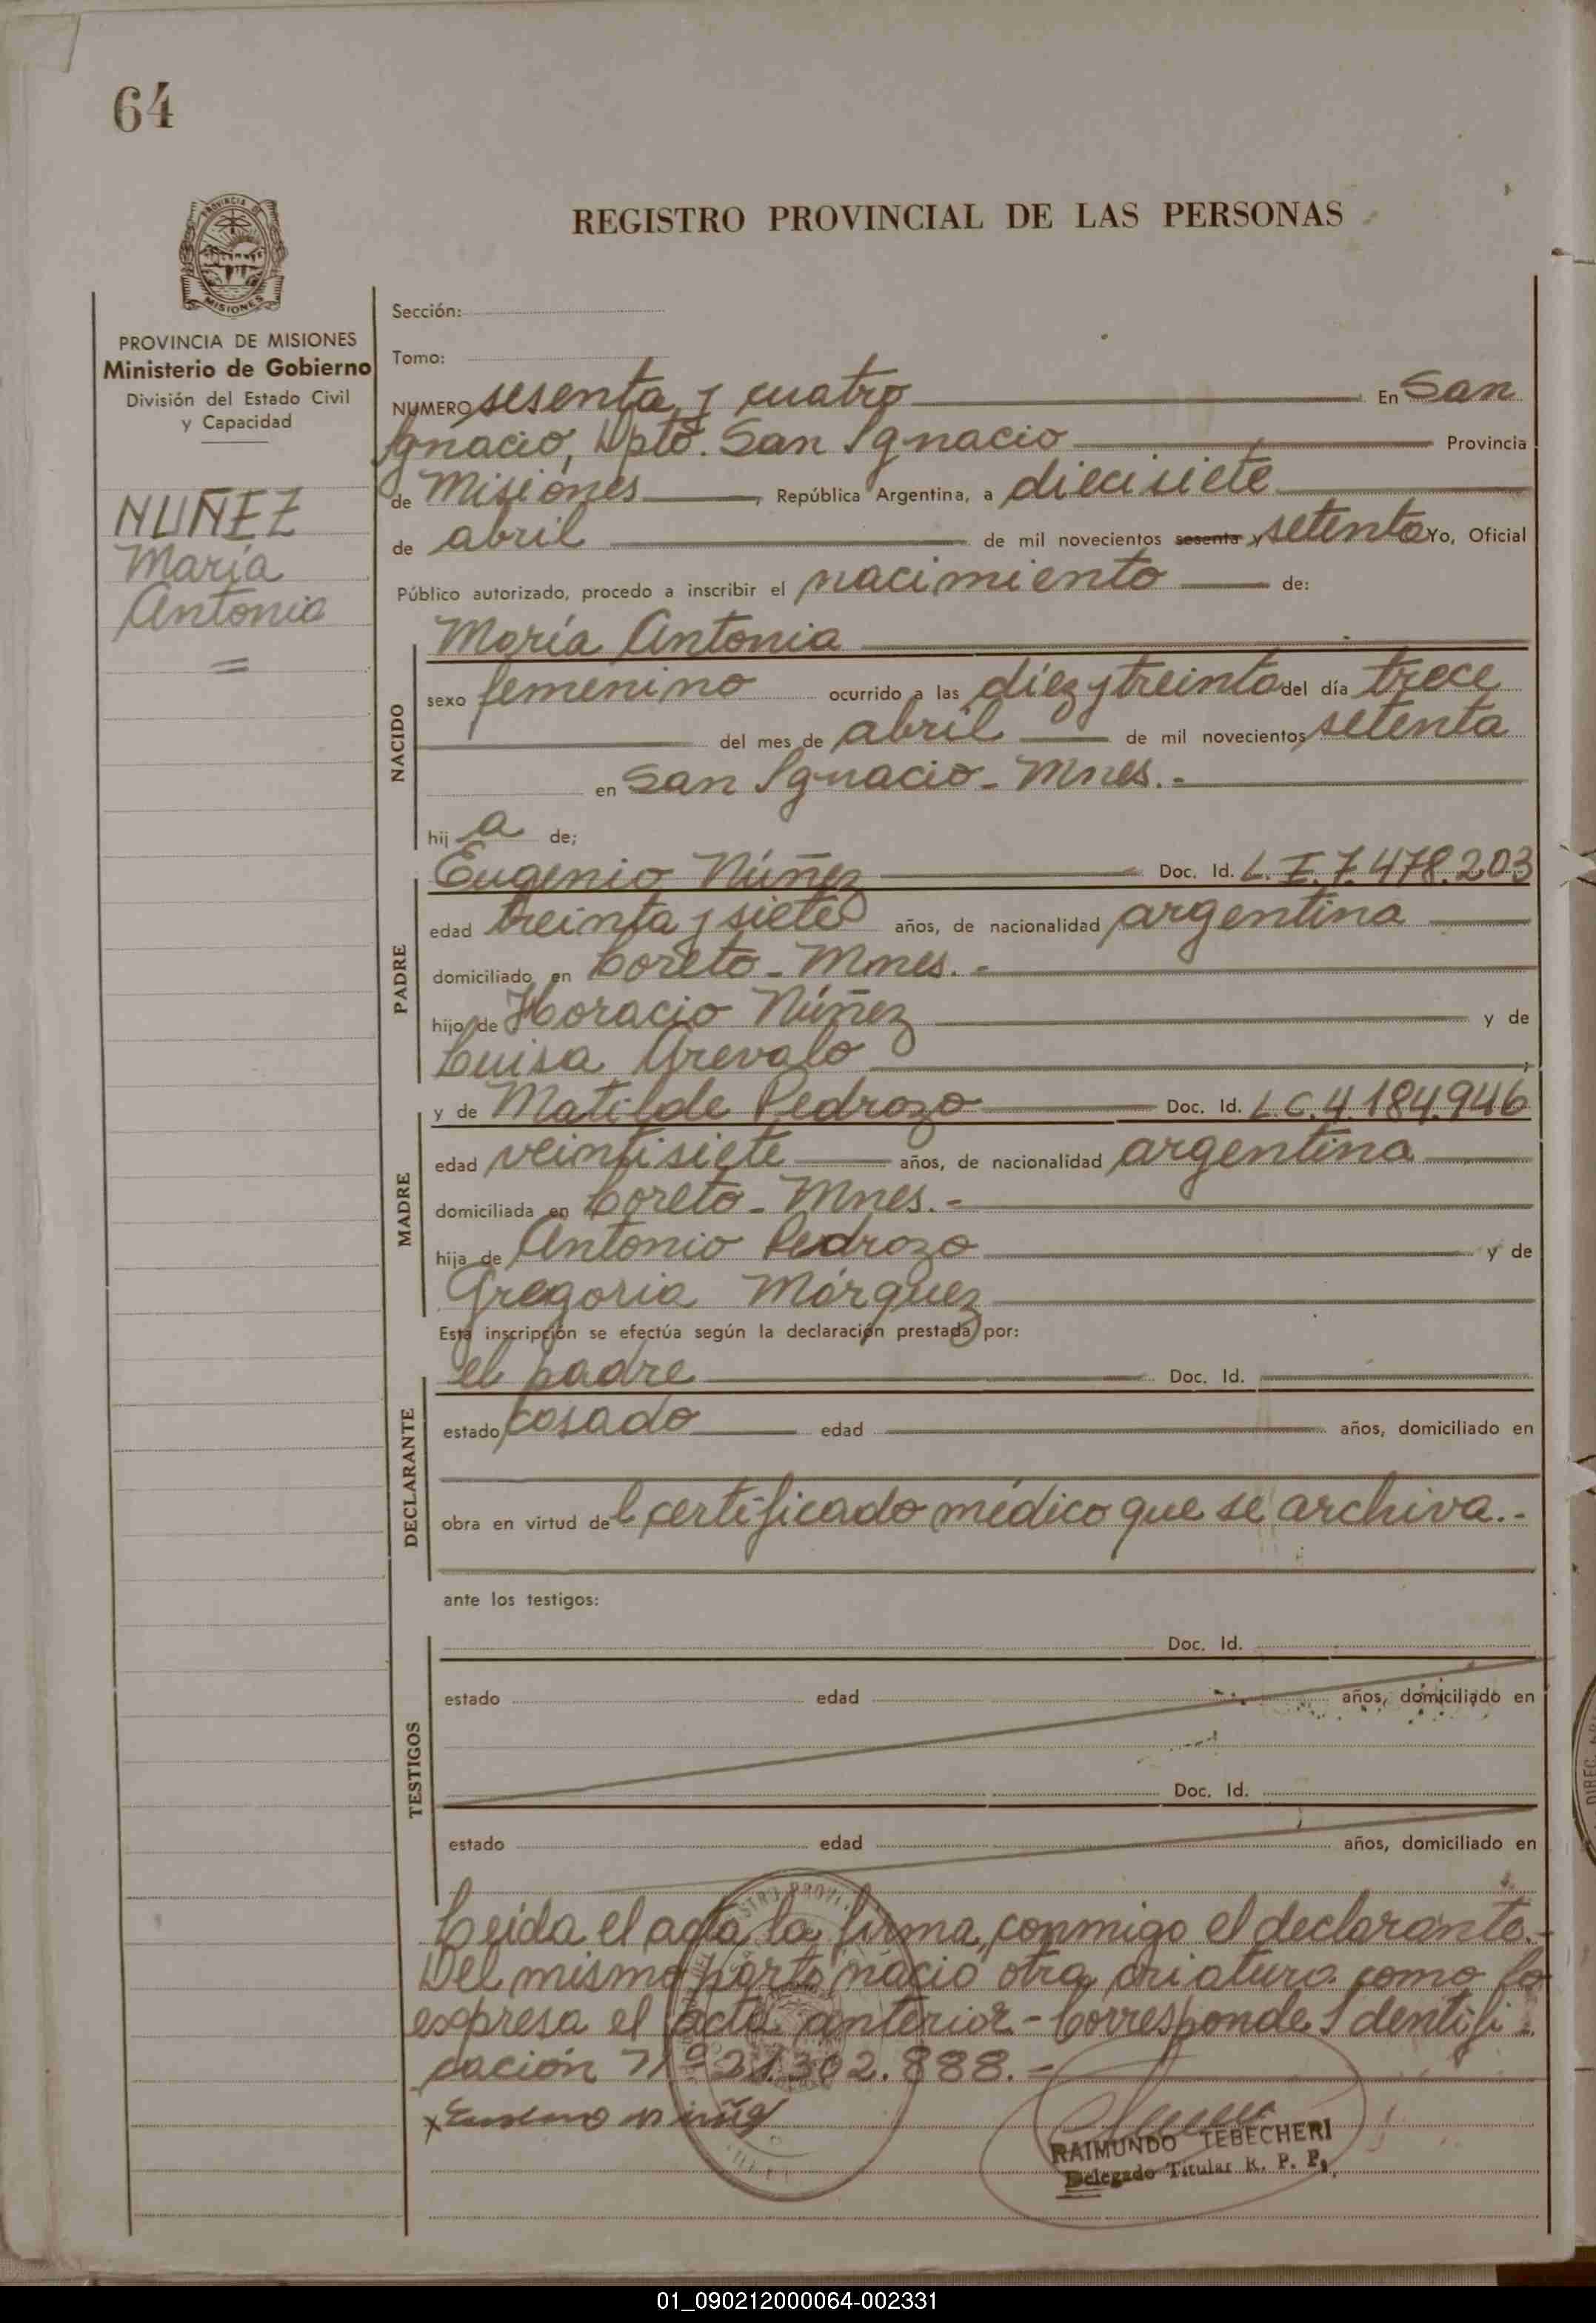 64
PROVINCIA DE
MISIONES
REGISTRO PROVINCIAL DE LAS PERSONAS
PROVINCIA DE MISIONES
Ministerio de Gobierno
División del Estado Civil
y Capacidad
NUÑEZ
María
Antonia
Sección:
Tomo:
NUMERO sesenta y cuatro En San
Ignacio, Dpto. San Ignacio Provincia
de Misiones, República Argentina, a diecisiete
de abril de mil novecientos sesenta y setenta Yo, Oficial
Público autorizado, procedo a inscribir el nacimiento de:
NACIDO
María Antonia
sexo femenino ocurrido a las diez y treinta del día trece
del mes de abril de mil novecientos setenta
en San Ignacio - Mnes.-
hij a de;
PADRE
Eugenio Núñez Doc. Id. L.E.7.478.203
edad treinta y siete años, de nacionalidad argentina
domiciliado en Loreto - Mnes.-
hijo de Horacio Núñez y de
Luisa Arevalo
MADRE
y de Matilde Pedrozo Doc. Id. L.C.4.184.946
edad veintisiete años, de nacionalidad argentina
domiciliada en Loreto - Mnes.-
hija de Antonio Pedrozo y de
Gregoria Márquez
Esta inscripción se efectúa según la declaración prestada por:
DECLARANTE
el padre Doc. Id.
estado casado edad años, domiciliado en
obra en virtud del certificado médico que se archiva.-
ante los testigos:
TESTIGOS
Doc. Id.
estado edad años, domiciliado en
Doc. Id.
estado edad años, domiciliado en
Leída el acta la firma, conmigo el declarante.-
Del mismo parto nació otra criatura como lo
expresa el acta anterior - Corresponde Identifi
cación Nº 21.302.888.-
x Eugenio Nuñez
RAIMUNDO TEBECHERI
Delegado Titular R. P. P.
01_090212000064-002331